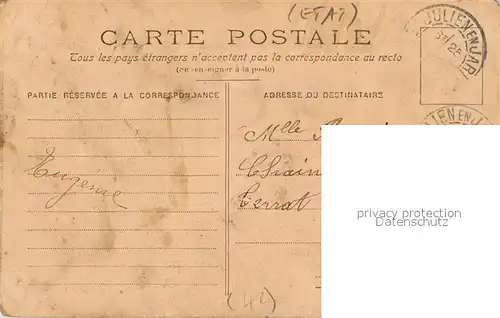 (ETAT)
JULIEN EN JAR
CARTE POSTALE
Tous les pays étrangers n'acceptent pas la correspondance au recto
(Se renseigner à la poste)
PARTIE RÉSERVÉE A LA CORRESPONDANCE
ADRESSE DU DESTINATAIRE
JULIEN EN J
Mlle
Eugénie
Terrat
privacy protection
Datenschutz
(42)